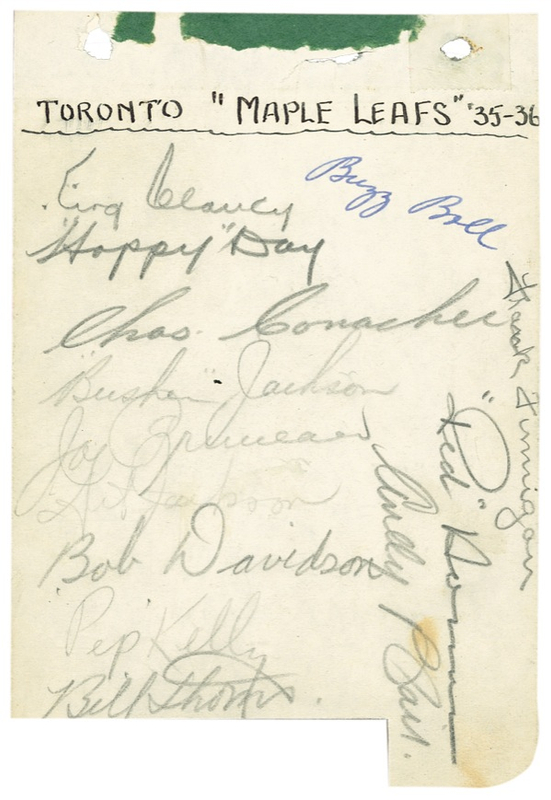 TORONTO "MAPLE LEAFS" '35-36
King Clancy
Buzz Boll
"Happy" Day
Chas. Conacher
"Busher" Jackson
Joe Primeau
Art Jackson
Bob Davidson
"Pep" Kelly
Bill Thoms.
Andy Blair.
"Red" Horner
Frank Finnigan